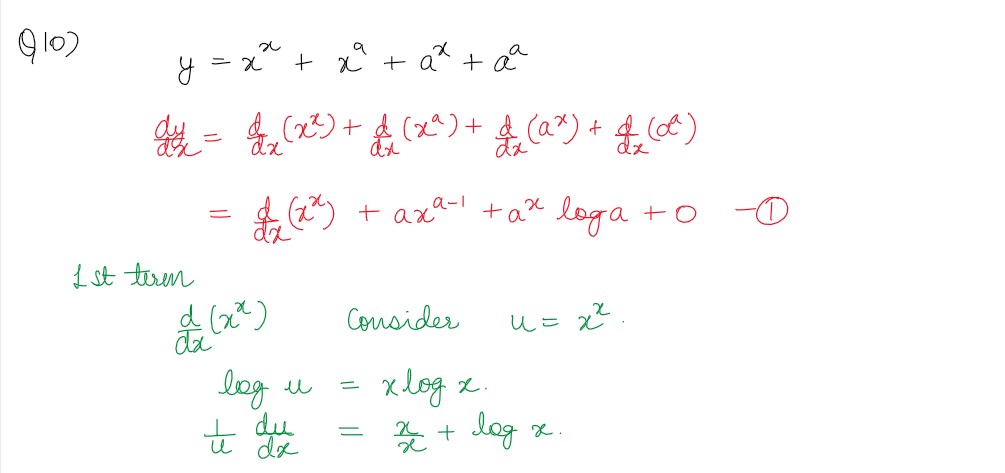 Q10)
y = x^x + x^a + a^x + a^a
dy/dx = d/dx (x^x) + d/dx (x^a) + d/dx (a^x) + d/dx (a^a)
= d/dx (x^x) + ax^(a-1) + a^x log a + 0 - ①
1st term
d/dx (x^x) Consider u = x^x.
log u = x log x.
1/u du/dx = x/x + log x.